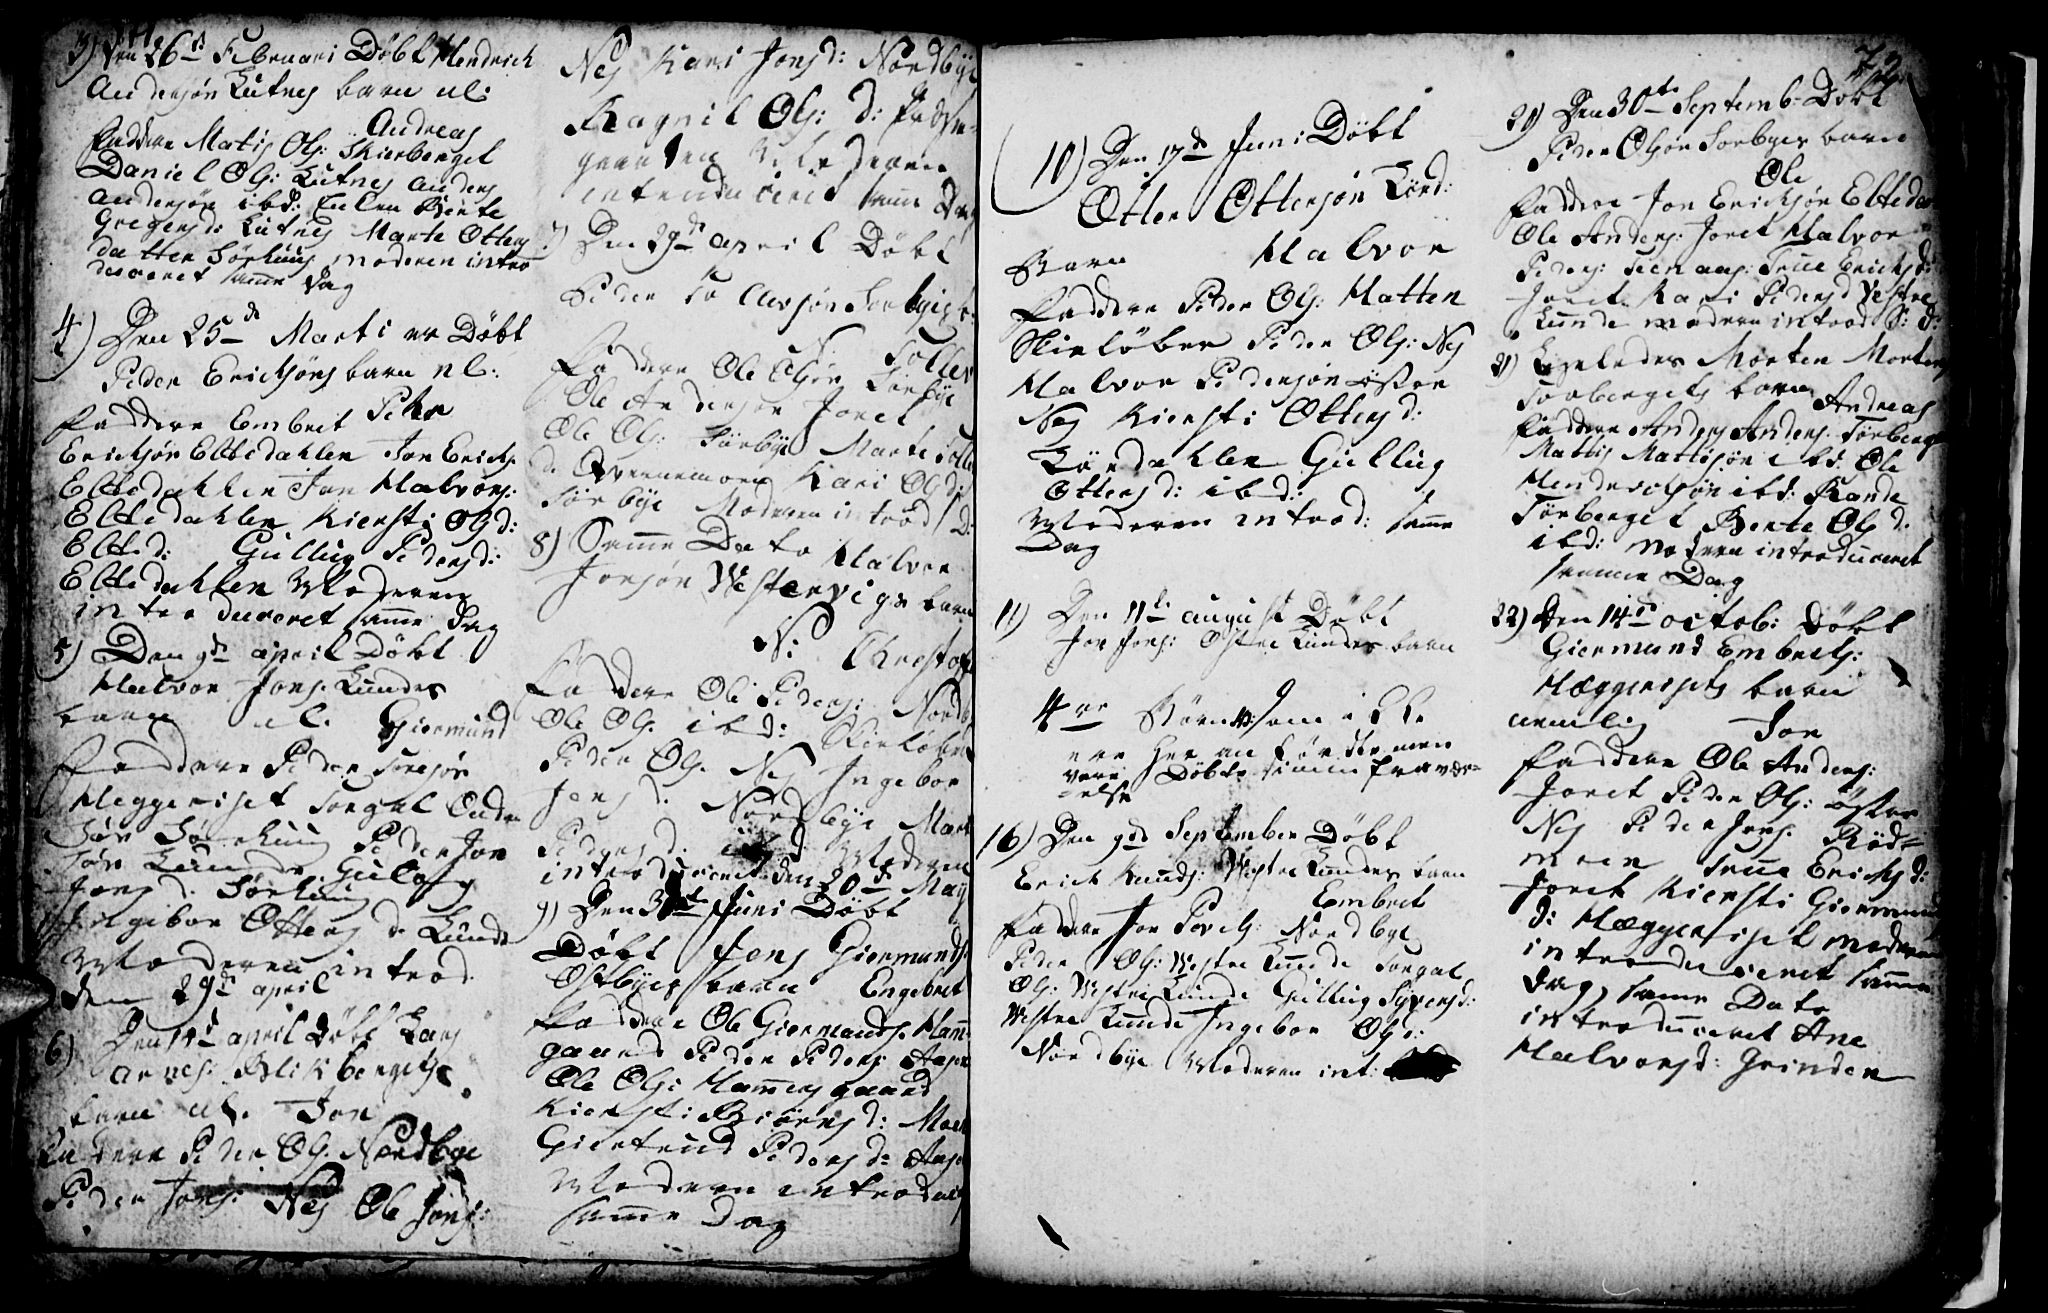 3) Den 26de Februari Døbt Hendrich
Andersøn Lutnes barn nl:
Andreas
Faddere Matis Ols: Skierberget
Daniel Ols: Lutnes Anders
Andersøn ibd: Enken Berte
Gregersd: Lutnes Marte Otters
datter Sørhuus Moderen intro
duceret samme Dag
4) Den 25de Marti er Døbt
Peder Erichsøns barn nl:
Peder
Faddere Embret
Erichsøn Eltedahlen Jon Erichs:
Eltedahlen Jon Halvors:
Eltedahlen Kiersti Olsd:
Elted: Gullug Pedersd:
Eltedahlen Moderen
introduceret samme Dag
5) Den 9de april Døbt
Halvor Jons: Lundes
barn nl. Giermund
Faddere Peder
Heggeriset Torgal
Sørhuus Peder Jon
søn Lunde Gulog
Jonsd: Sørhuus
Ingebor Ottersd: Lunde
Moderen introd:
den 29de april
6) Den 14de april Døbt Lars
Arnes: Blikbergets
barn nl. Jon
Faddere Peder Ols: Nordbye
Peder Jons: Nes Ole Jons:
Nes Kari Jonsd: Nordbye
Ragnil Ols: d:
gaarden Moderen
introduceret samme Dag
7) Den 29de april Døbt
Peder Tollevsøn Sorbyes b:
N. Tollev
Faddere Ole Olsøn Sørbye
Ole Andersøn Joret
Ole Ols: Sørbye Marte Tolle
d: Qvernemoen Kari Olsd:
Sørbye Moderen introd S D:
8) Samme Dato Halvor
Jonsøn Westervigs barn
N: Christof
Faddere Ole Peders: Nordb
Ole Ols: ibd: Skieløber
Peder Ols. Nes Ingebor
Jensd. Nordbye Mart
Pedersd: ibd Moderen
introduceret den 20de May
9) Den 3de Juni Døbt
Døbt Jens Giermunds:
Østbyes barn Engebret
Faddere Ole Giermunds: Ham
gaard Peder Peders:
Ole Ols: Hammersgaard
Kiersti Biørnsd: Moe
Giertrud Pedersd:
Moderen introduc
samme Dag
72
10) Den 17de Juni Døbt
Otter Ottersøn Lørd:
Barn Halvor
Faddere Peder Ols: Hatten
Skieløber Peder Ols: Nes
Halvor Pedersøn Øster
Nes Kiersti Ottersd:
Lørdahlen Gullug
Ottersd: ibd:
Moderen introd: samme
Dag
11) Den 11te august Døbt
Jon Jons: Østre Lundes barn
4re Børn som ikke
ere her an førdte men
vare Døbte i min fravær=
else
16) Den 9de September Døbt
Erich Knuds: Westre Lundes barn
Embret
Faddere Jon Povels: Nordbye
Peder Ols: Westre Lunde Torgal
Ols: Westre Lunde Gullug Syversd:
Westre Lunde Ingebor Olsd:
Nordbye Moderen int:
21) Den 30te Septemb: Døbt
Peder Olsøn Sorbyes barn
Ole
Faddere Jon Erichsøn Eltedah
Ole Anders: Joret Halvor
Peders: Teenaas: True Erichsd:
Joret Kari Pedersd Vestre
Lunde Moderen introd S: D:
21) Ligeledes Morten Mortens
Torbergets barn Andreas
Faddere Anders Anders: Tørberge
Mattis Mattisøn ibd: Ole
Hendrichsøn ibd: Rande
Tørberget Berte Olsd:
ibd: Moderen introduceret
samme Dag
22) Den 14de octob: Døbt
Giermund Embrets:
Hæggerisets barn
nemlig Jon
Faddere Ole Anders:
Joret Peder Ols: Øster
Nes Peder Jons: Rød=
moen True Erichsd:
Joret Kiersti Giermund
d: Hæggeriset Moderen
introduceret samme
Dag, samme Dato
introduceret Ane
Halvorsd: Grinden